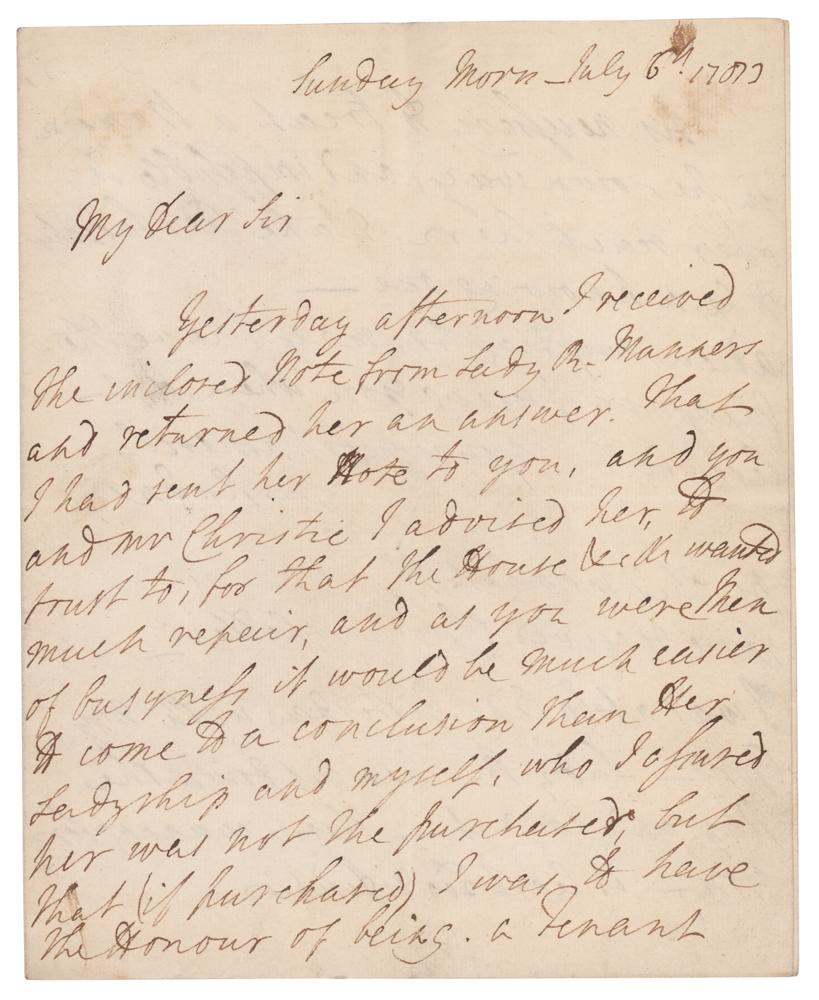 Sunday Morn - July 6th
My Dear Sir
Yesterday afternoon I received
the inclosed Note from Lady R. Manners
and returned her an answer. That
I had sent her Note to you, and you
and Mr Christie I advised her, to
trust to, for that the House &c &c wanted
much repair, and as you were Men
of busyness it would be much easier
to come to a conclusion than Her
Ladyship and myself, who I assured
her was not the purchaser, but
that (if purchased) I was to have
the Honour of being. a Tenant